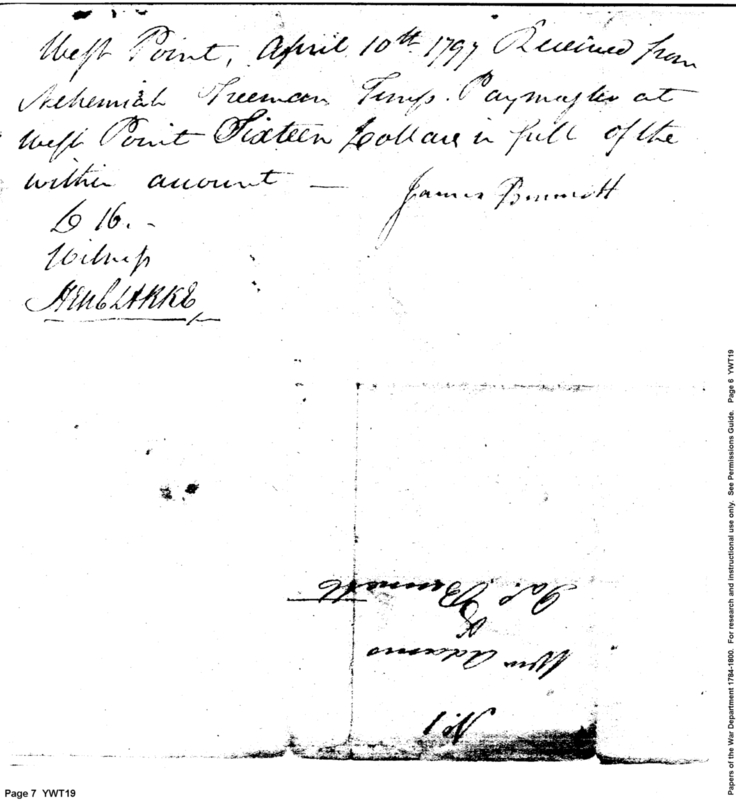 West Point, April 10th 1797 Received from
Nehemiah Freeman Temp. Paymaster at
West Point Sixteen Dollars in full of the
within account —
James Bennett
D 16. -
Witness
No. 1
Wm Adams
&
Jas. Bennett
Page 7 YWT19
Papers of the War Department 1784-1800. For research and instructional use only. See Permissions Guide. Page 6 YWT19